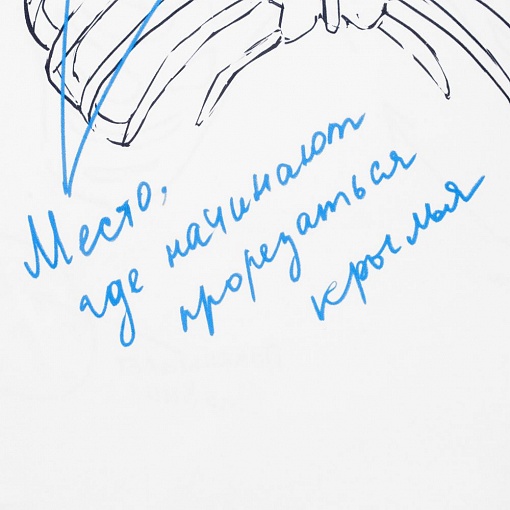 Место,
где начинают
прорезаться
крылья